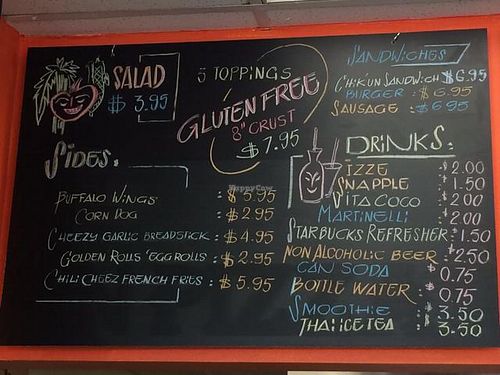 SALAD
$ 3.95
5 TOPPINGS
GLUTEN FREE
8" CRUST
$ 7.95
SANDWICHES
CHIKUN SANDWICH $ 6.95
BURGER : $ 6.95
SAUSAGE : $ 6.95
SIDES.
BUFFALO WINGS : $ 5.95
CORN DOG : $ 2.95
CHEEZY GARLIC BREADSTICK : $ 4.95
GOLDEN ROLLS "EGG ROLLS : $ 2.95
CHILI CHEEZ FRENCH FRIES : $ 5.95
DRINKS.
IZZE : $ 2.00
SNAPPLE : $ 1.50
VITA COCO : $ 2.00
MARTINELLI : $ 2.00
STARBUCKS REFRESHER : $ 1.50
NON ALCOHOLIC BEER : $ 2.50
CAN SODA : $ 0.75
BOTTLE WATER : $ 0.75
SMOOTHIE : $ 3.50
THAI ICE TEA : $ 3.50
HappyCow